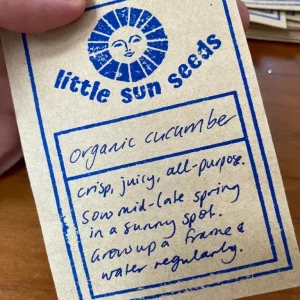 little sun seeds
organic cucumber
crisp, juicy, all-purpose.
sow mid-late spring
in a sunny spot.
Grow up a frame &
water regularly.